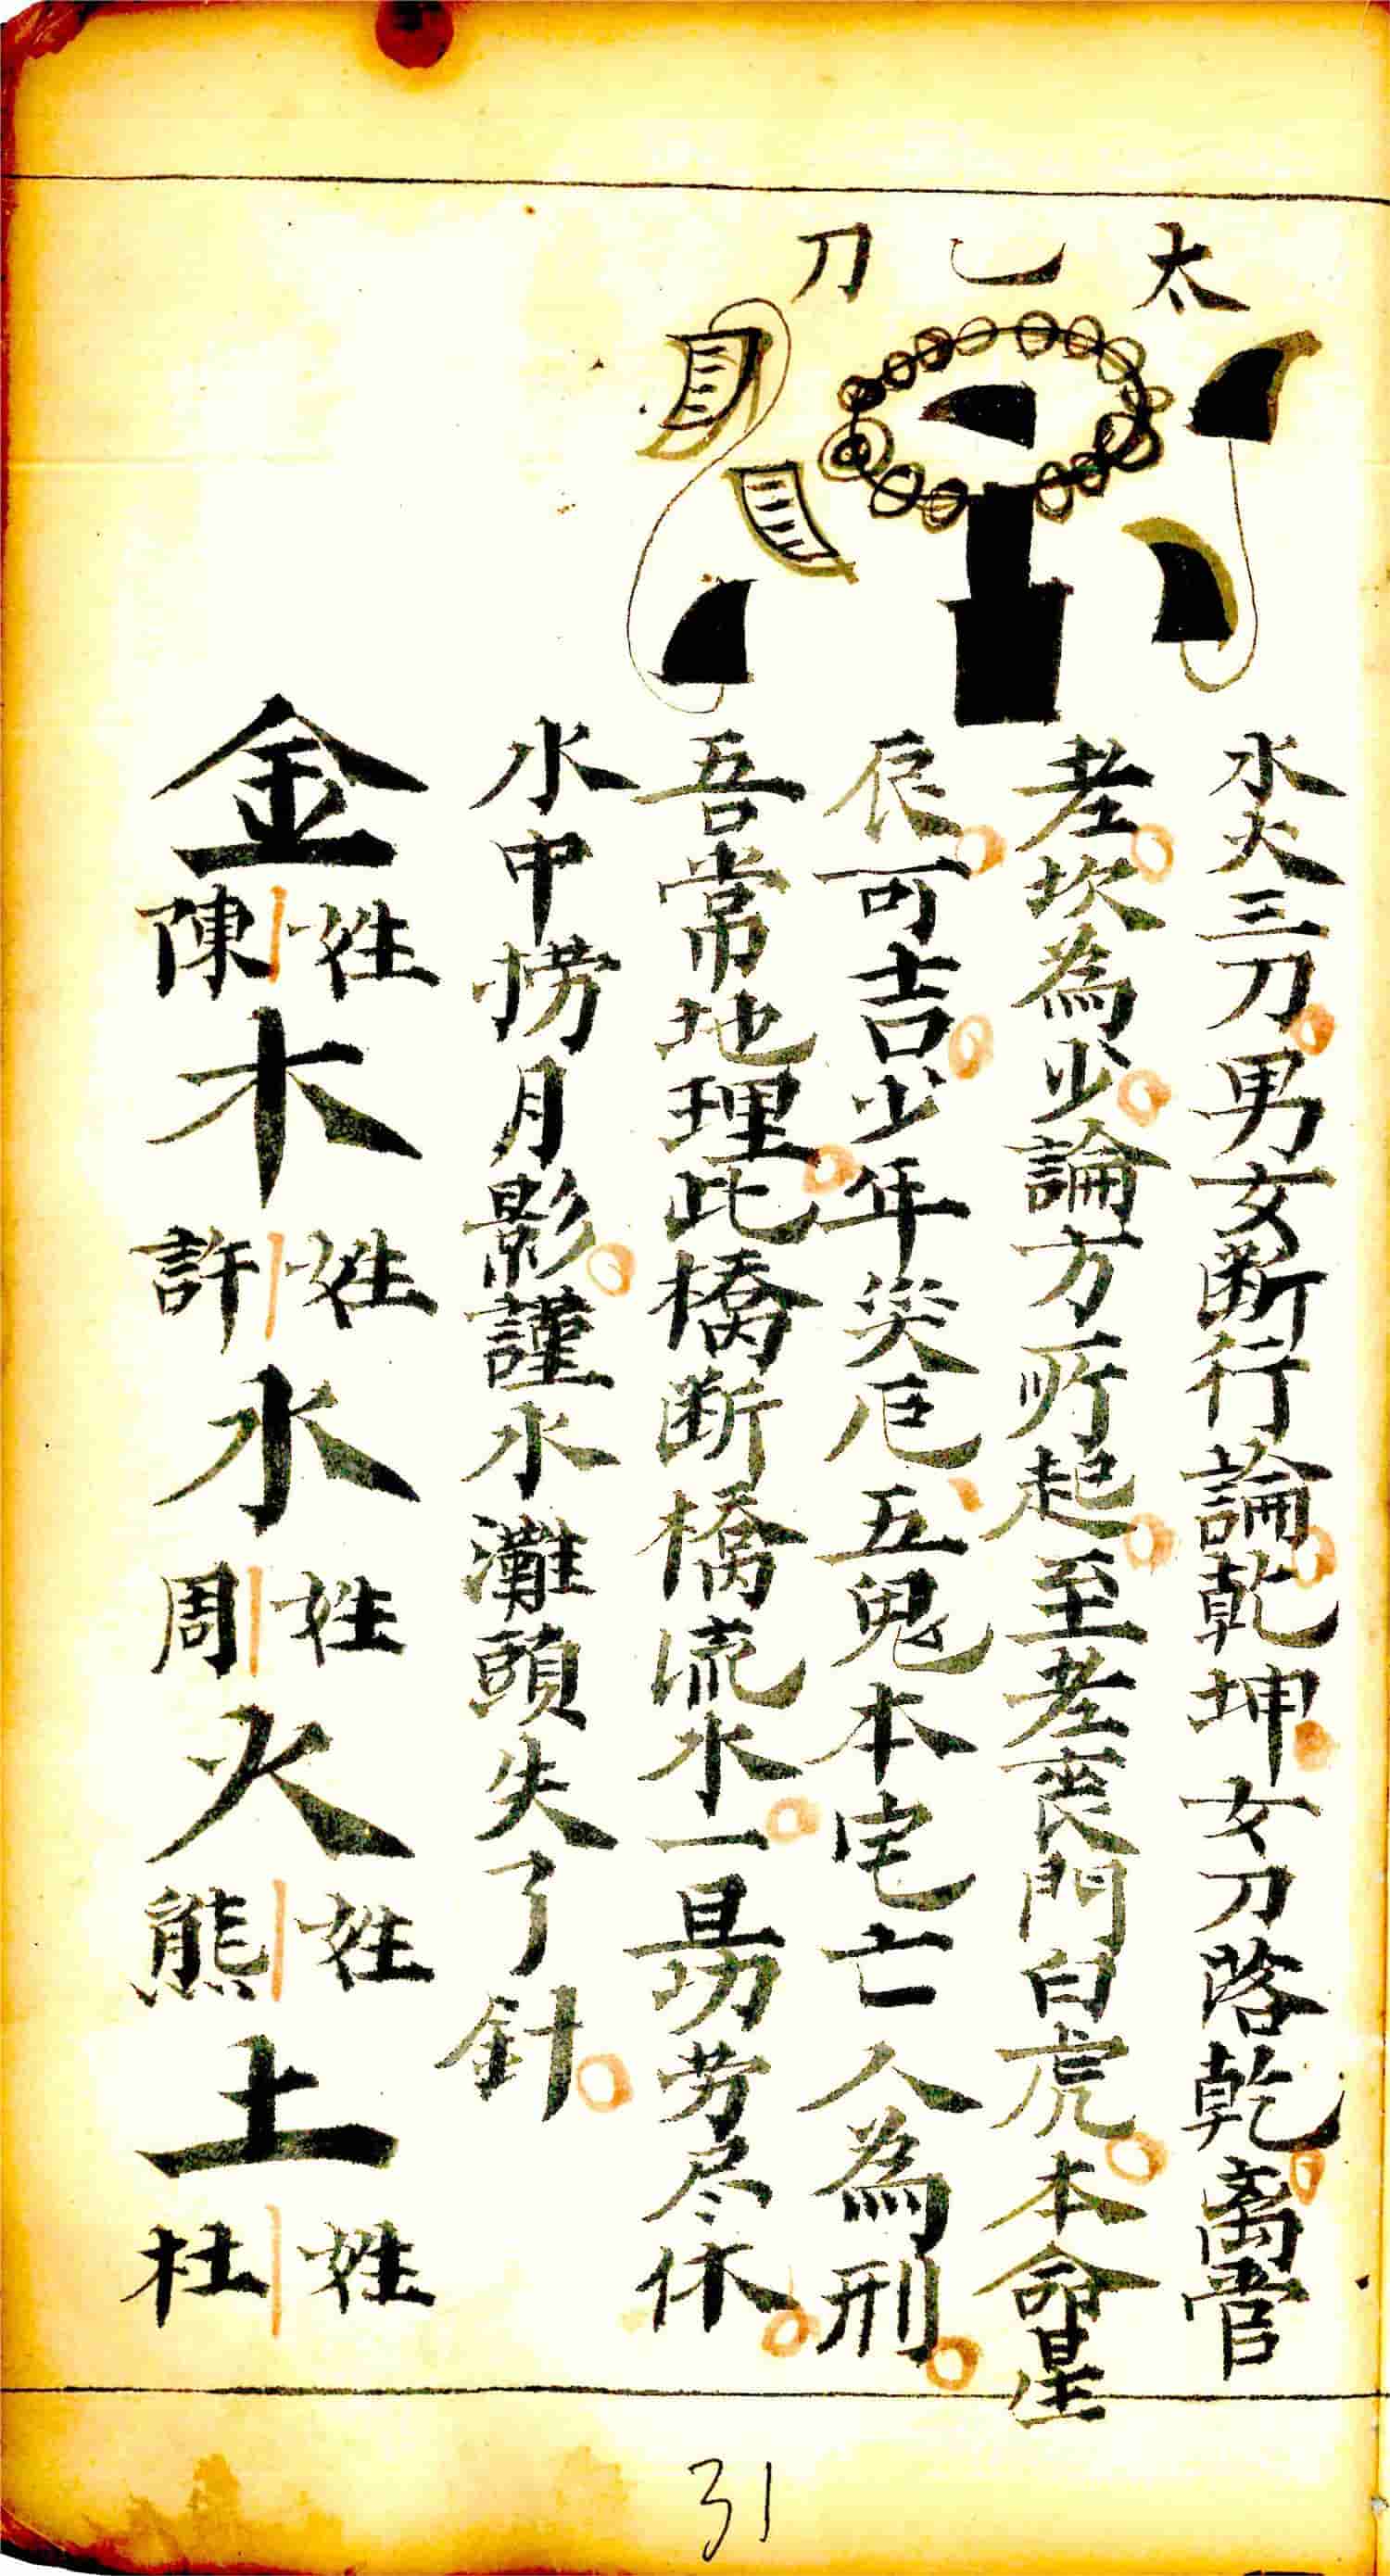 太乙刀
水火三刀男女断行論乾坤女刀落乾离宫
老坎為少論方所起至老喪門白虎本命星
辰可吉少年災厄五鬼本宅亡人為刑
吾常地理此橋断橋流水一旦功劳尽休
水中撈月影謹水灘頭失了針
金
姓 陳
木
姓 許
水
姓 周
火
姓 熊
土
姓 杜
31